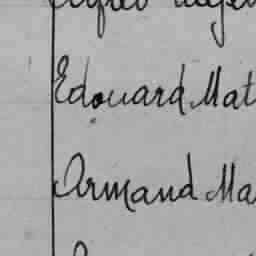 Edouard Mat
Armand Ma